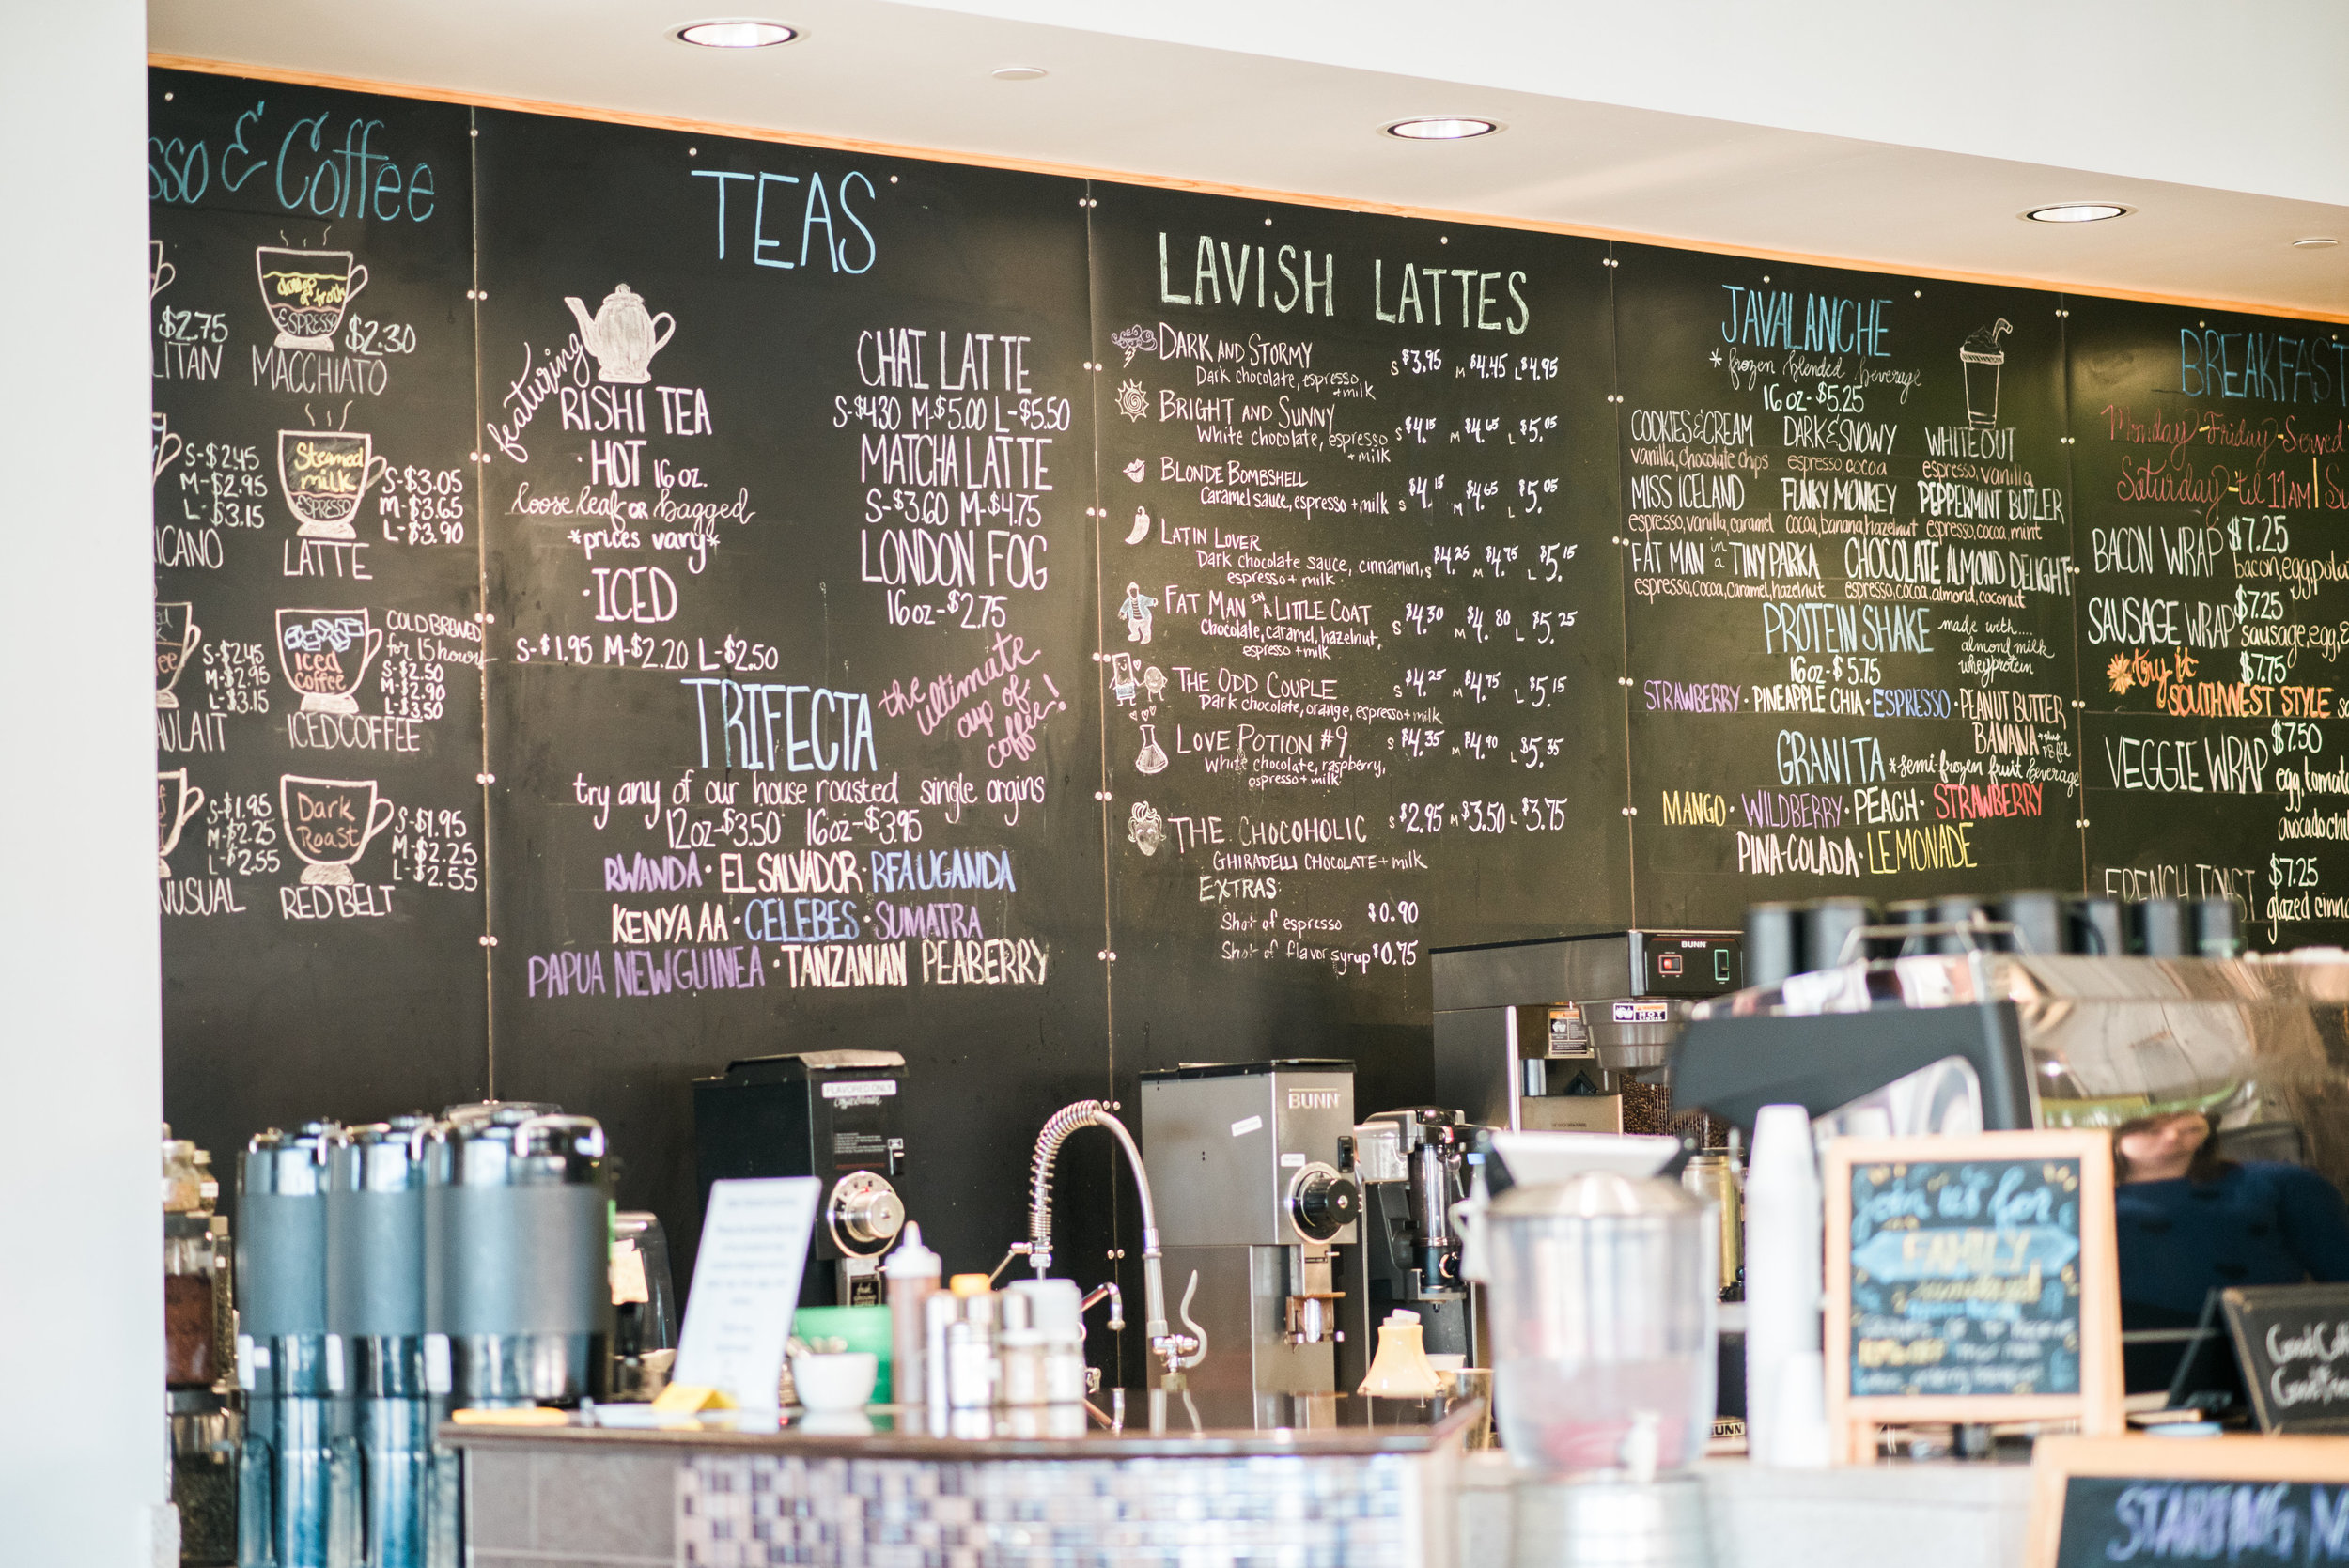 sso & Coffee
$2.75
ITAN
dollop of froth
ESPRESSO
$2.30
MACCHIATO
S-$2.45
M-$2.95
L-$3.15
ICANO
Steamed milk
ESPRESSO
S-$3.05
M-$3.65
L-$3.90
LATTE
S-$2.45
M-$2.95
L-$3.15
AU LAIT
Iced Coffee
COLD BREWED
for 15 hours
S-$2.50
M-$2.90
L-$3.50
ICED COFFEE
S-$1.95
M-$2.25
L-$2.55
NUSUAL
Dark Roast
S-$1.95
M-$2.25
L-$2.55
RED BELT
TEAS
featuring
RISHI TEA
·HOT 16 oz.
loose leaf OR bagged
*prices vary*
·ICED
S-$1.95 M-$2.20 L-$2.50
CHAI LATTE
S-$4.30 M-$5.00 L-$5.50
MATCHA LATTE
S-$3.60 M-$4.75
LONDON FOG
16oz-$2.75
TRIFECTA
the ultimate cup of coffee!
try any of our house roasted single orgins
12oz-$3.50 16oz-$3.95
RWANDA · EL SALVADOR · RFA UGANDA
KENYA AA · CELEBES · SUMATRA
PAPUA NEW GUINEA · TANZANIAN PEABERRY
LAVISH LATTES
DARK AND STORMY S $3.95 M $4.45 L $4.95
Dark chocolate, espresso + milk
BRIGHT AND SUNNY S $4.15 M $4.65 L $5.05
White chocolate, espresso + milk
BLONDE BOMBSHELL
Caramel sauce, espresso + milk S $4.15 M $4.65 L $5.05
LATIN LOVER
Dark chocolate sauce, cinnamon, S $4.25 M $4.75 L $5.15
espresso + milk
FAT MAN IN A LITTLE COAT S $4.30 M $4.80 L $5.25
Chocolate, caramel, hazelnut,
espresso + milk
THE ODD COUPLE S $4.25 M $4.75 L $5.15
Dark chocolate, orange, espresso + milk
LOVE POTION #9 S $4.35 M $4.90 L $5.35
White chocolate, raspberry,
espresso + milk
THE CHOCOHOLIC S $2.95 M $3.50 L $3.75
GHIRADELLI CHOCOLATE + milk
EXTRAS:
Shot of espresso $0.90
Shot of flavor syrup $0.75
JAVALANCHE
*frozen blended beverage
16 oz-$5.25
COOKIES & CREAM DARK & SNOWY WHITEOUT
vanilla, chocolate chips espresso, cocoa espresso, vanilla
MISS ICELAND FUNKY MONKEY PEPPERMINT BUTLER
espresso, vanilla, caramel cocoa, banana, hazelnut espresso, cocoa, mint
FAT MAN in a TINY PARKA CHOCOLATE ALMOND DELIGHT
espresso, cocoa, caramel, hazelnut espresso, cocoa, almond, coconut
PROTEIN SHAKE made with....
almond milk
whey protein
16oz-$5.75
STRAWBERRY · PINEAPPLE CHIA · ESPRESSO · PEANUT BUTTER
BANANA
GRANITA *semi-frozen fruit beverage
MANGO · WILDBERRY · PEACH · STRAWBERRY
PINA-COLADA · LEMONADE
BREAKFAST
Monday-Friday-Served
Saturday-til 11AM
BACON WRAP $7.25
bacon, egg, pota
SAUSAGE WRAP $7.25
sausage, egg,
try it $7.75
SOUTHWEST STYLE
VEGGIE WRAP $7.50
egg, tomat
avocado
FRENCH TOAST $7.25
glazed cinna
BUNN
HOT
FLAVORED ONLY
BUNN
BUNN
Join us for
FAMILY
STARTING